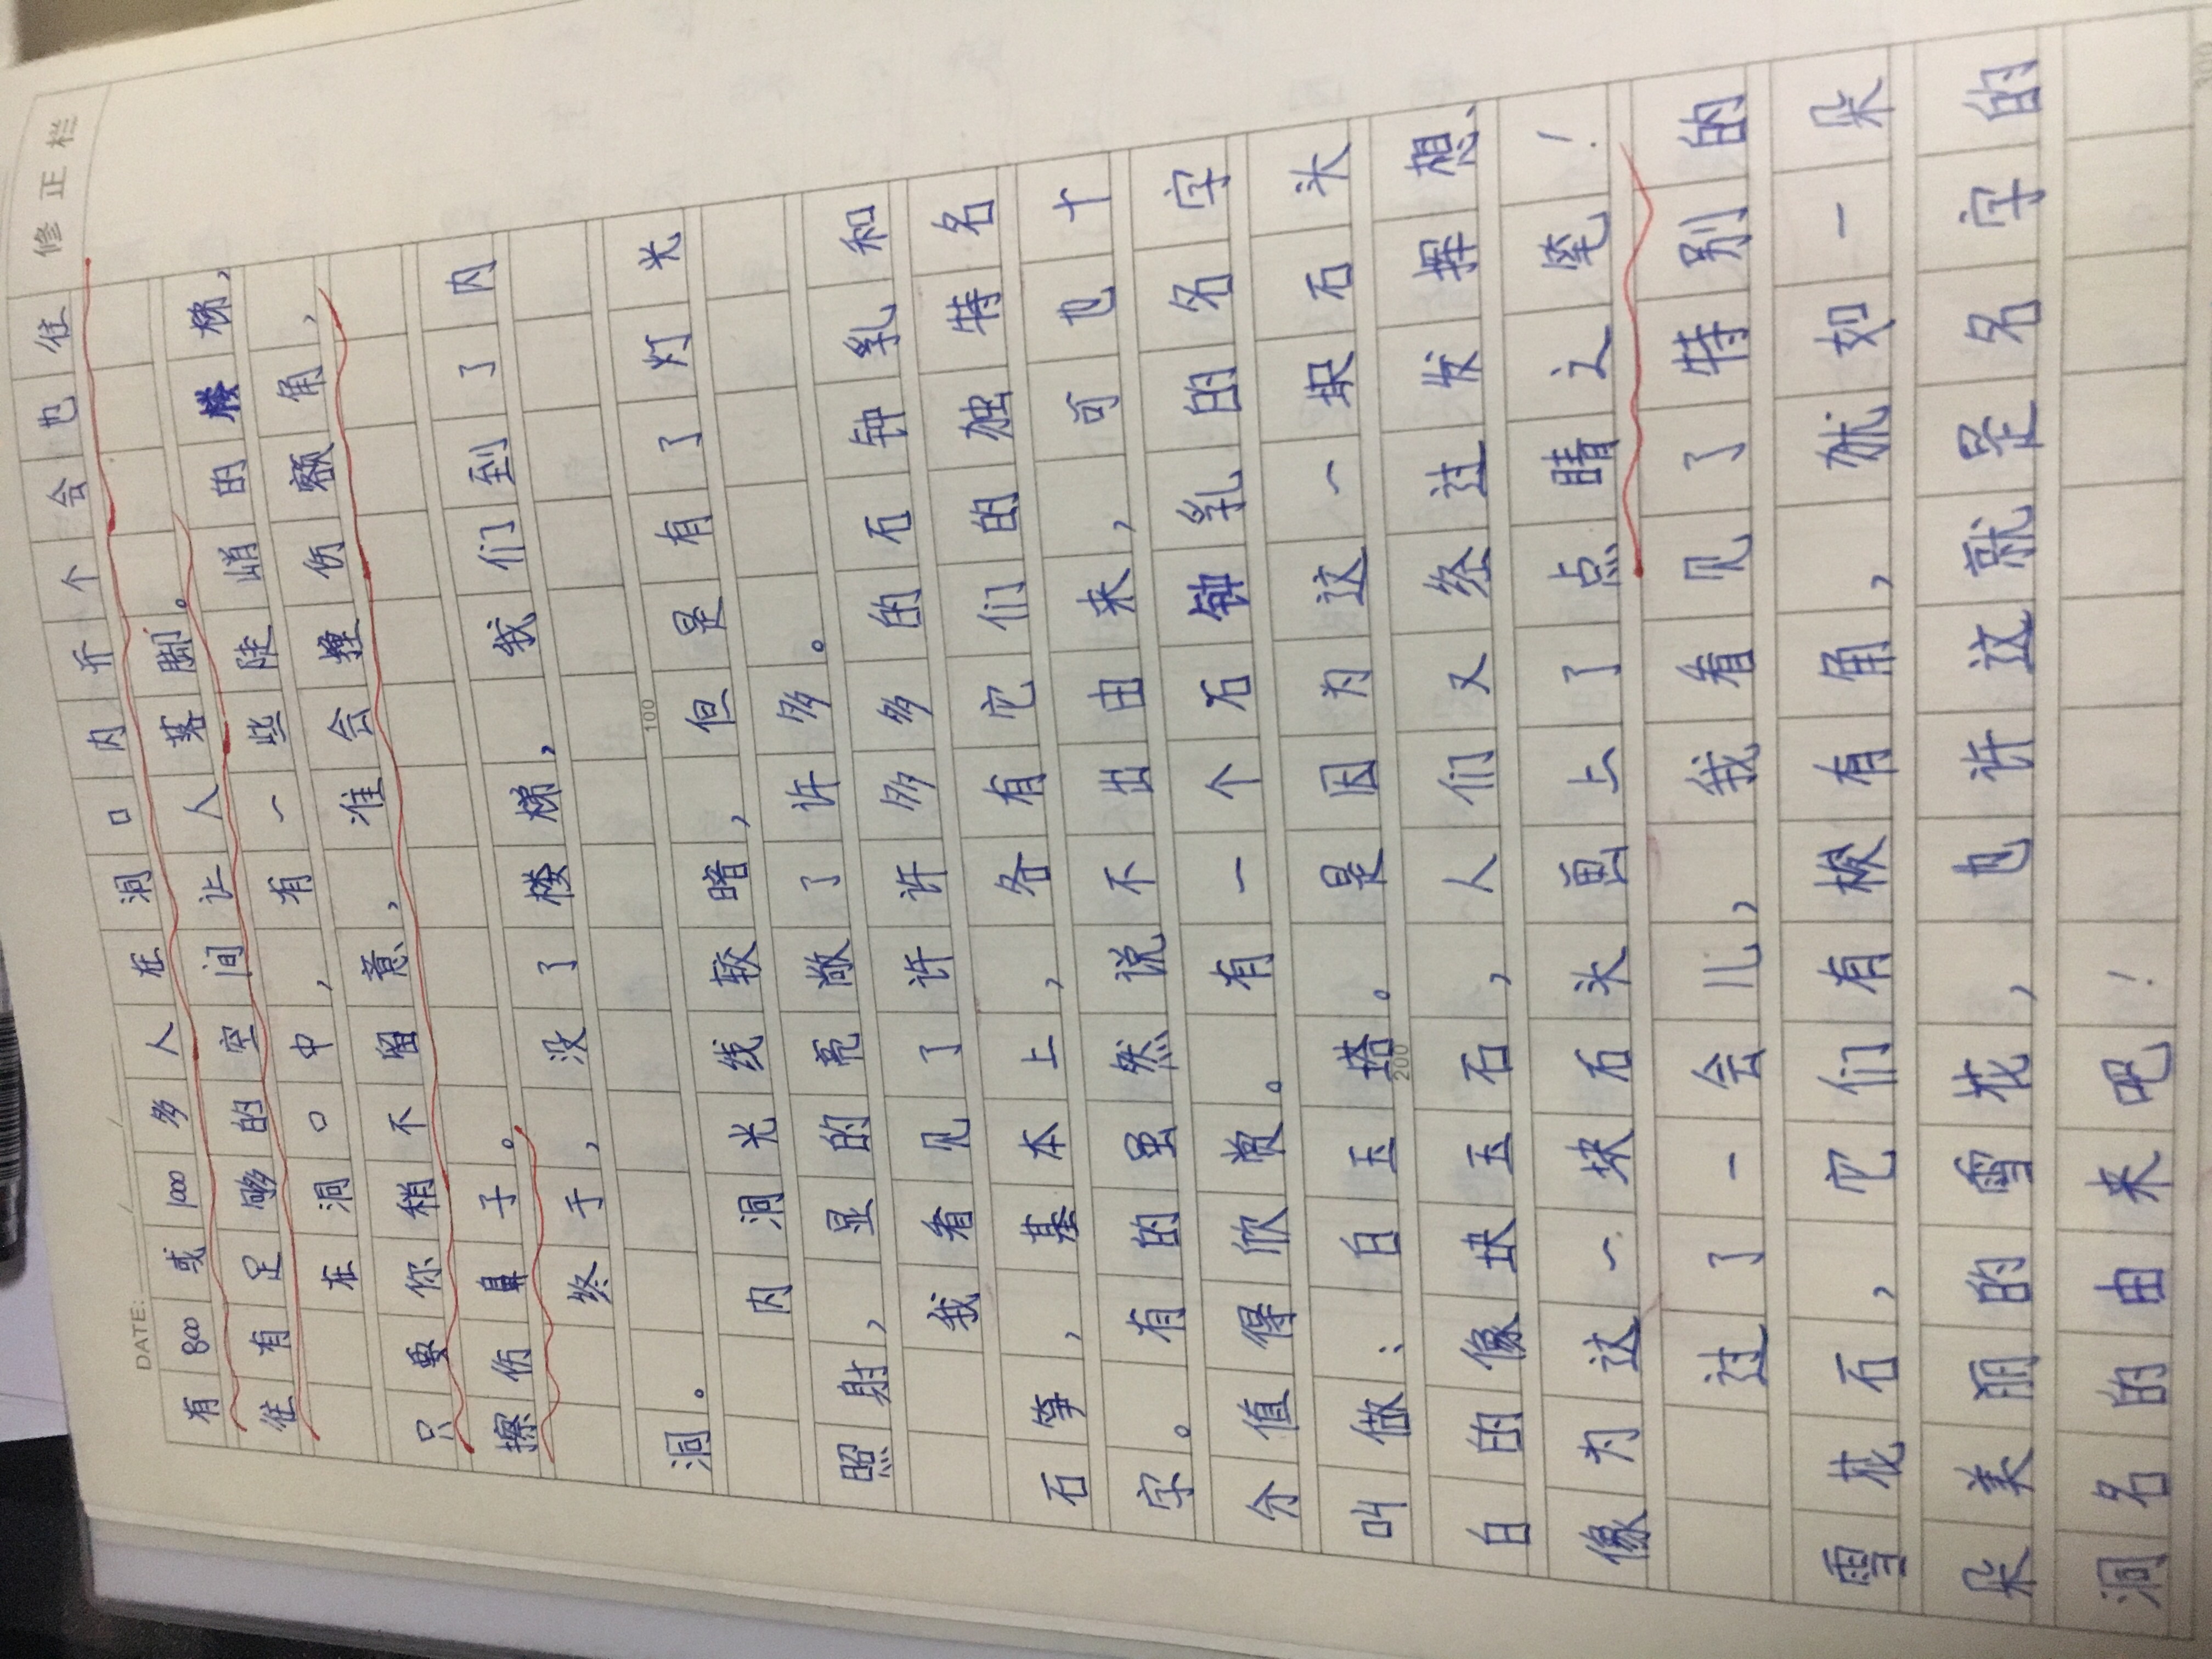 修正栏
DATE:
有800或1000多人在洞口内乔个会也往
往有足够的空间让人落脚。
在洞口中，有一些陡峭的楼梯，
只要你稍不留意，准会撞伤额角，
擦伤鼻子。
终于，没了楼梯，我们到了内
洞。
100
内洞光线较暗，但是有了灯光
照射，显的亮敞了许多。
我看见了许许多多的石钟乳和
石笋，基本上，各有它们的独特名
字。有的虽然说不出由来，可也十
分值得欣赏。有一个石钟乳的名字
叫做：白玉塔。是因为这一块石头
200
白的像块玉石，人们又经过发挥想
像为这一块石头画上了点睛之笔！
过了一会儿，我看见了特别的
雪花石，它们有棱有角，就如一朵
朵美丽的雪花，也许这就是名字的
洞名的由来吧！
300